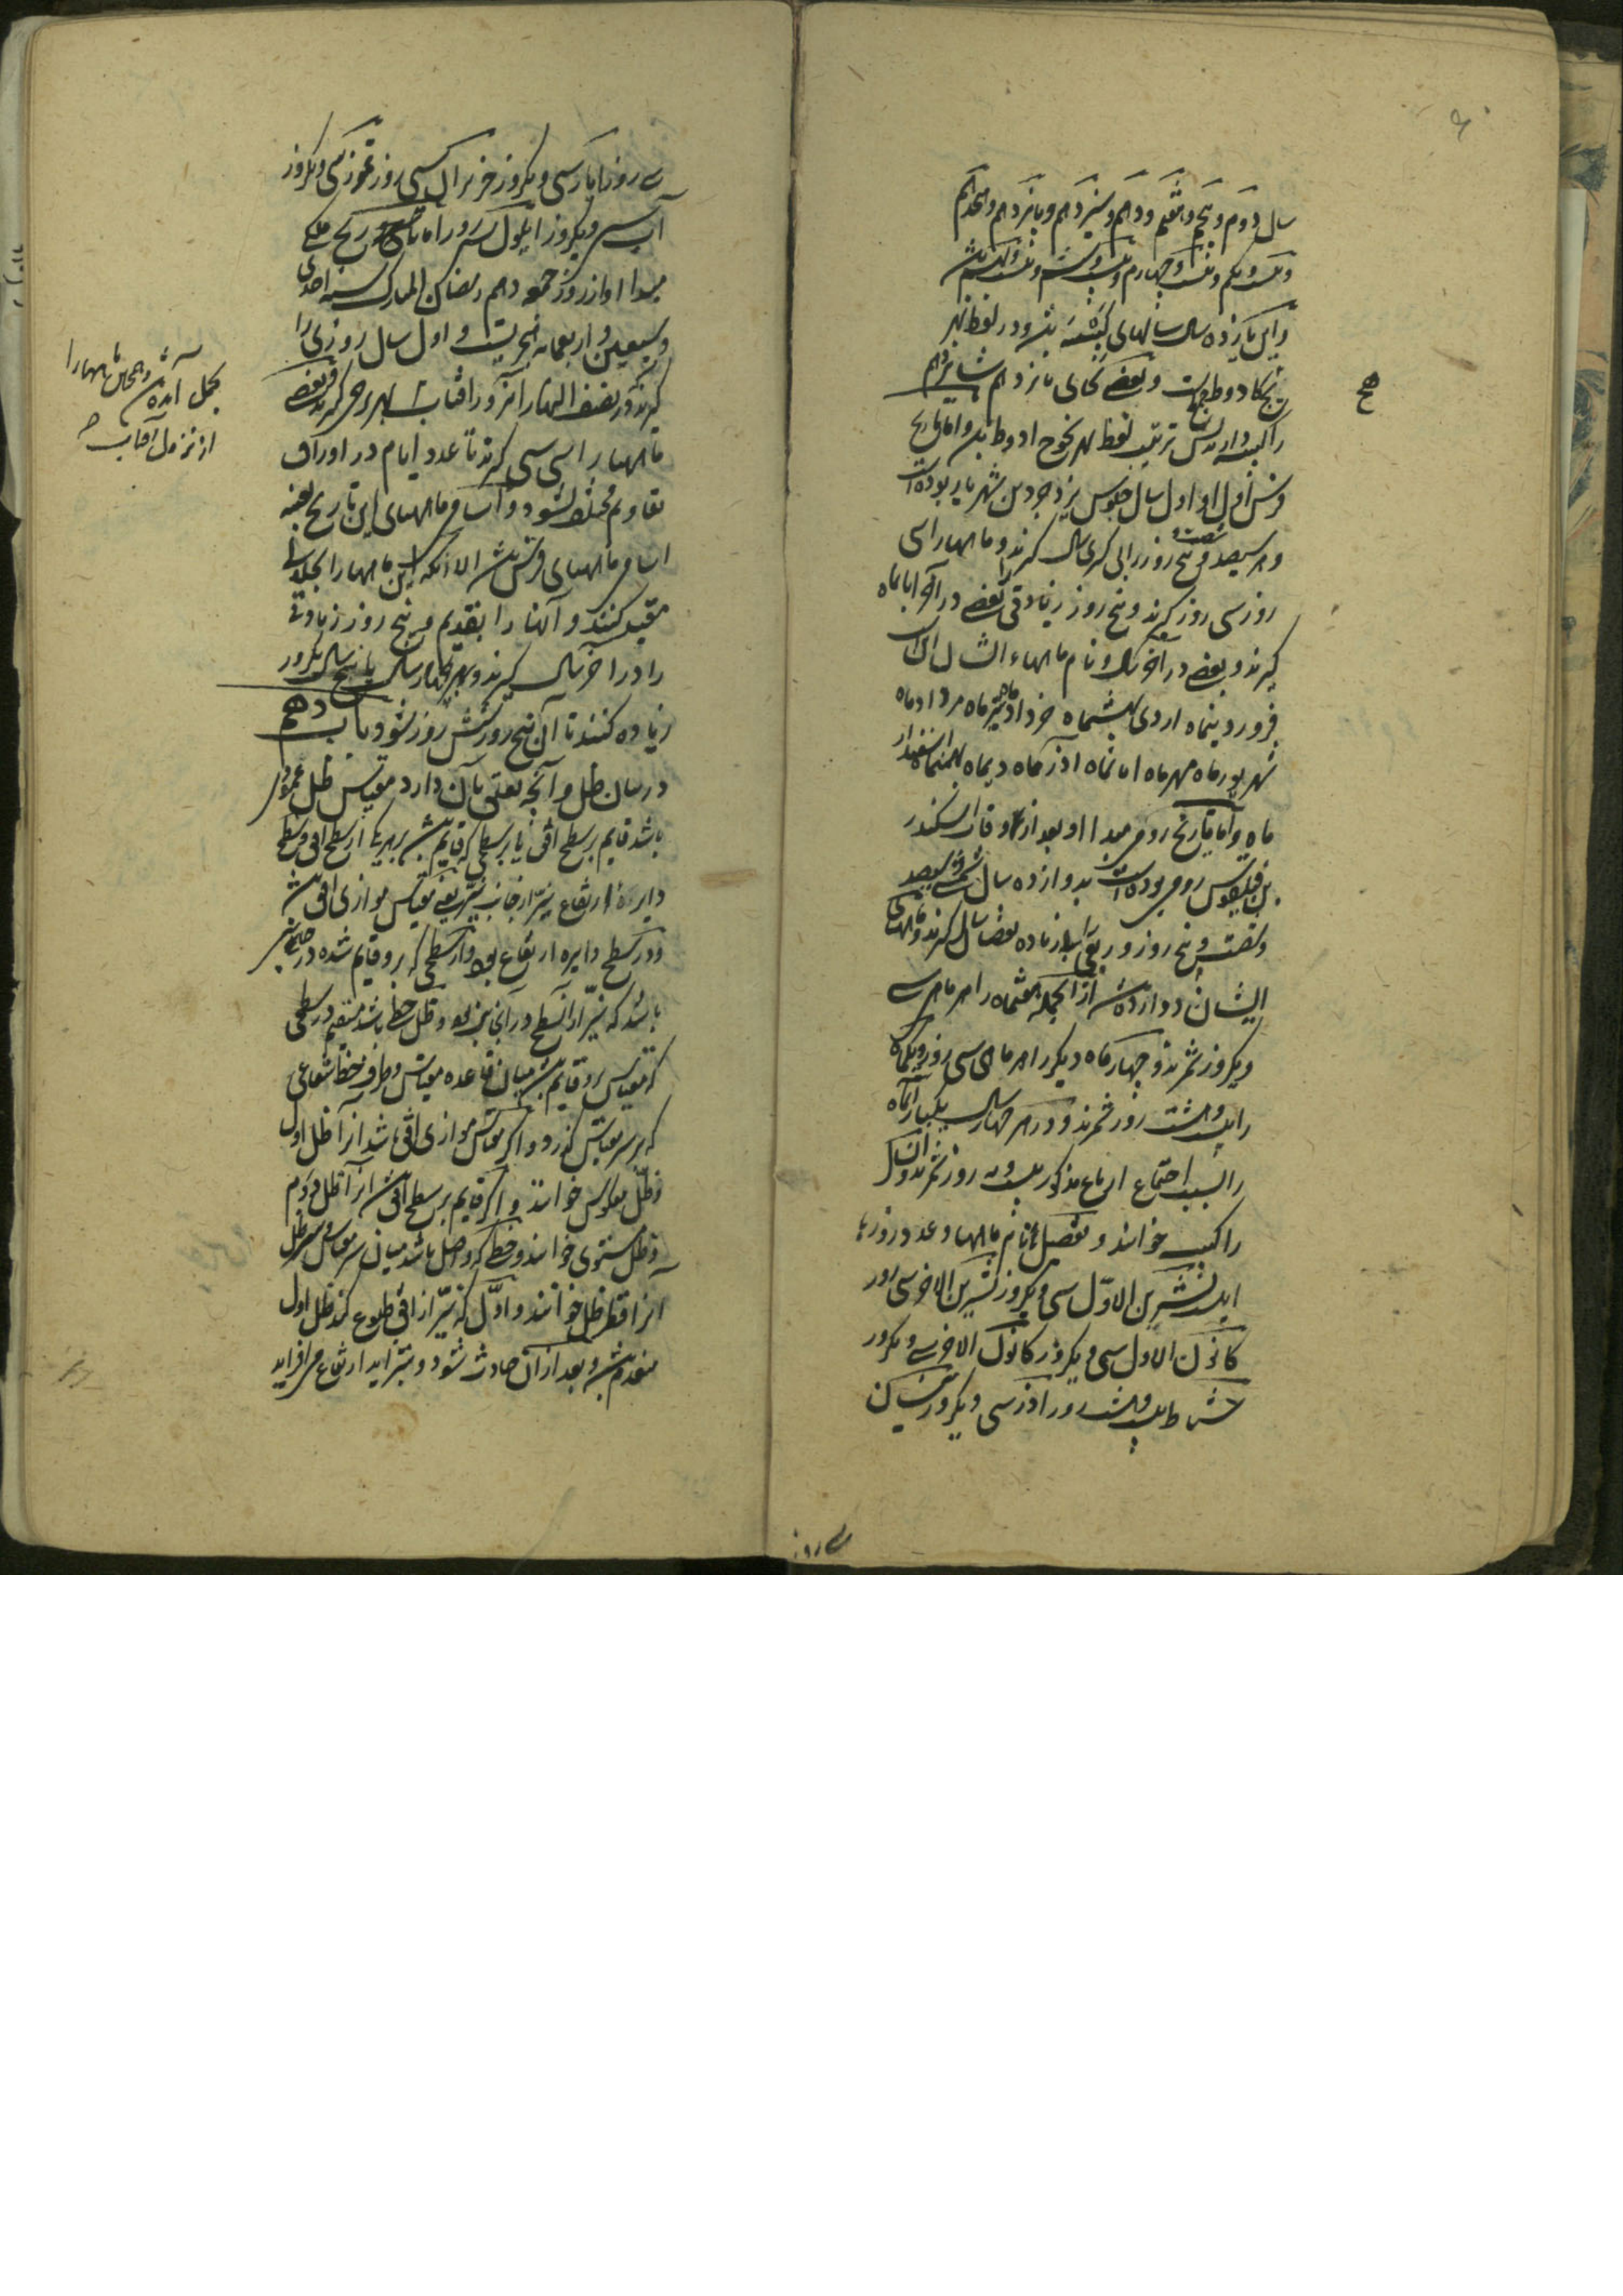 سال دوم و پنجم و هفتم و دهم و سیزدهم و پانزدهم و هجدهم
و بیست و یکم و بیست و چهارم و بیست و ششم و بیست و نهم باشد
و این یازده سال سالهای کبیسه باشد و در لفظ بهر
یجح کادوط جمعست و بعضی بجای پانزدهم شانزدهم
را کبیسه دارند پس ترتیب لفظ بهر یجوح ادوط باشد و اما تاریخ
فرس اول او اول سال جلوس یزدجرد بن شهریار بوده است
و هر سیصد و شصت و پنج روز را بی کسری سال گیرند و ماهها را سی
روز سی روز گیرند و پنج روز زیادتی بعضی در آخر ابانماه
گیرند و بعضی در آخر سال و نام ماههاء ایشان این است
فروردینماه اردی بهشتماه خردادماه تیرماه مردادماه
شهریورماه مهرماه ابانماه آذرماه دیماه بهمنماه اسفندار
ماه و اما تاریخ رومی مبدا او بعد از وفات اسکندر
بن فیلقوس رومی بوده است بدوازده سال شمسی و سیصد
و شصت و پنج روز و ربعی بی زیاده و نقصان سال گیرند و ماههای
ایشان دوازده است از آنجمله هفتماه را هر ماهی سی
و یکروز شمرند و چهار ماه دیگر را هر ماهی سی روز و یکماه
را بیست و هشت روز شمرند و در هر چهار سال یکبار آنماه
را بسبب اجتماع ارباع مذکور بیست و نه روز شمرند و آن سال
را کبیسه خوانند و تفصیل نام ماهها و عدد روزها
اینست تشرین الاول سی و یکروز تشرین الاخر سی روز
کانون الاول سی و یکروز کانون الاخر سی و یکروز
شباط بیست و هشت روز اذر سی و یکروز نیسان
سی روز
سی روز ایار سی و یکروز حزیران سی روز تموز سی و یکروز
آب سی و یکروز ایلول سی روز اما تاریخ ملکی
مبدا او از روز جمعه دهم رمضان المبارک سنه احدی
و سبعین و اربعمائه هجریست و اول سال روزی را
گیرند که در نصف النهار آنروز آفتاب بحمل آمده باشد و همچنین ماهها را از نزول آفتاب ببروج گیرند و بعضی
ماهها را سی سی گیرند تا عدد ایام در اوراق
تقاویم مختلف نشود و اسامی ماههای این تاریخ بعینه
اسامی ماههای فرس باشد الا آنکه این ماهها را بجلالی
مقید کنند و آنها را بقدیم و پنج روز زیادتی
را در آخر سال گیرند و بهر چهار سال یا پنج سال یکروز
زیاده کنند تا آن پنج روز شش روز شود باب دهم
در بیان ظل و آنچه تعلق بآن دارد مقیاس ظل عمودی
باشد قایم بر سطح افق یا بر سطحی که قایم باشد بر هر یک از سطح افق و سطح
دایره ارتفاع نیر از جانب نیر یعنی مقیاس موازی افق باشد
و در سطح دایره ارتفاع بود و از سطحی که برو قایم شده در جانبی
باشد که نیر از آن سطح در آنجانب بود و ظل خطی باشد مستقیم در سطحی
که مقیاس برو قایم باشد میان قاعده مقیاس و طرف خط شعاعی
که بر سر مقیاس گذرد و اگر مقیاس موازی افق باشد آنرا ظل اول
و ظل معکوس خوانند و اگر قایم بر سطح افق باشد آنرا ظل دوم
و ظل مستوی خوانند و خطی که واصل باشد میان سر مقیاس و سر ظل
آنرا قطر ظل خوانند و اول که نیر از افق طلوع کند ظل اول
منعدم باشد و بعد از آن حادث شود و بتزاید ارتفاع می‌افزاید